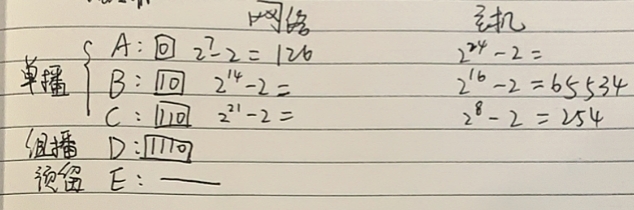 网络 主机
A: 0 2⁷-2 = 126 2²⁴-2 =
单播 B: 10 2¹⁴-2 = 2¹⁶-2 = 65534
C: 110 2²¹-2 = 2⁸-2 = 254
组播 D: 1110
预留 E: —